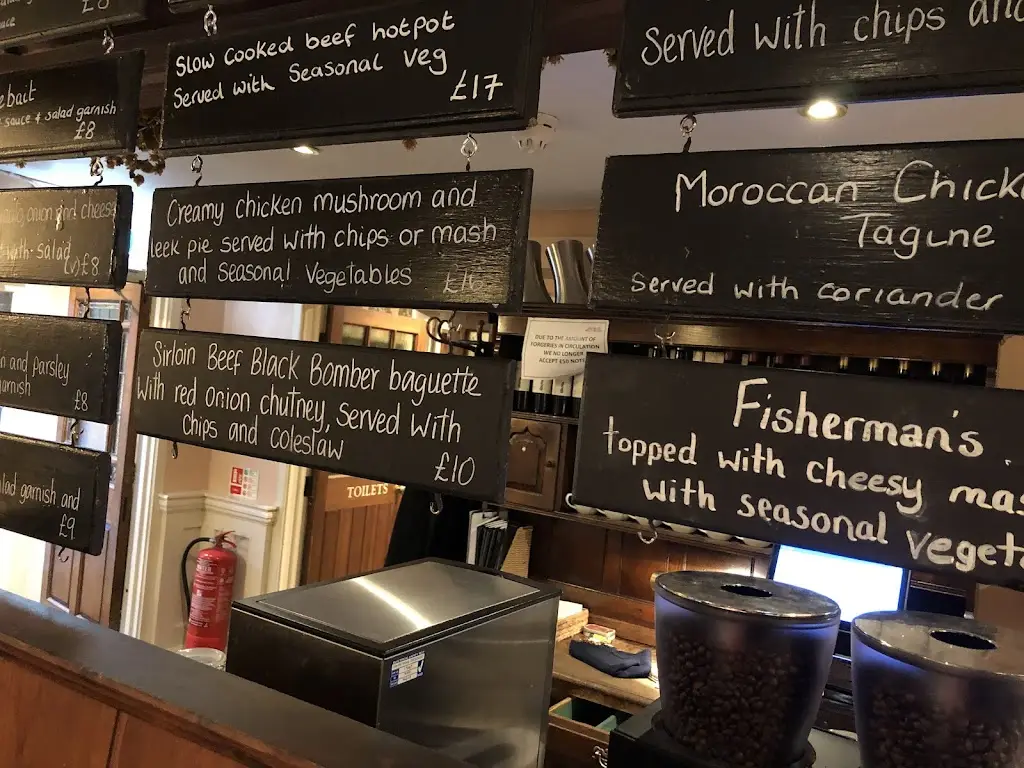 sauce
£8
bait
sauce & salad garnish
£8
onion and cheese
with salad
(v) £8
and parsley
garnish
£8
salad garnish and
£9
Slow Cooked beef hotpot
Served with Seasonal Veg
£17
Creamy chicken mushroom and
leek pie served with chips or mash
and seasonal vegetables £16
Sirloin Beef Black Bomber baguette
with red onion chutney, served with
chips and coleslaw
£10
Served with chips and
Moroccan Chick
Tagine
Served with coriander
DUE TO THE AMOUNT OF
FORGERIES IN CIRCULATION
WE NO LONGER
ACCEPT £50 NOTES
Fisherman's
topped with cheesy mas
with seasonal veget
TOILETS